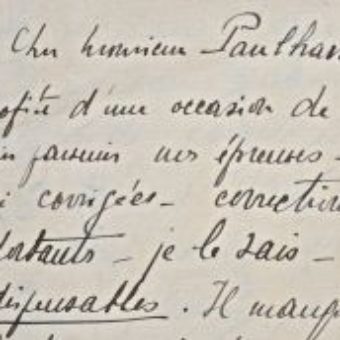 Cher monsieur Paulhan
ofité d'une occasion de
parvenir mes épreuves -
i corrigées - correction
ortants - je le sais -
dispensables. Il manq